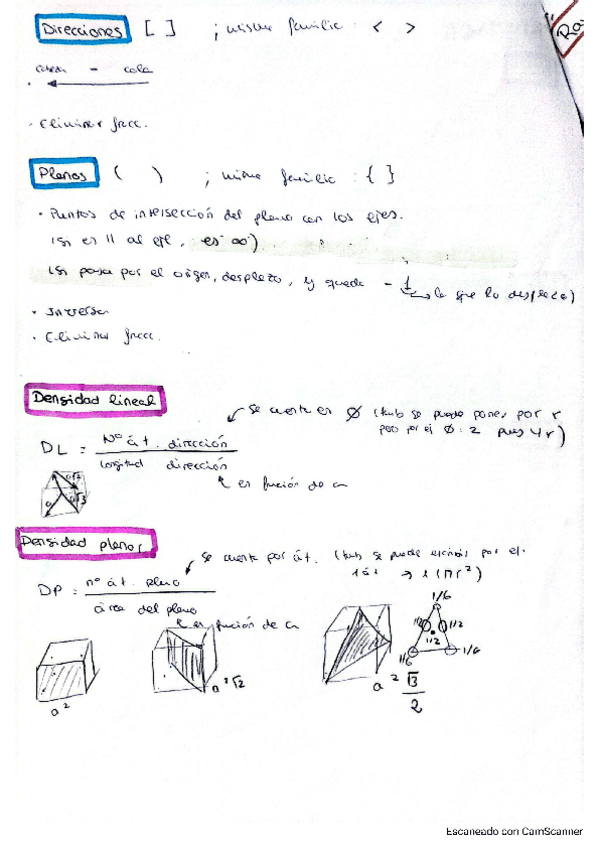 Direcciones [ ] ; misma familia : < >
Ro
cabeza - cola
· Eliminar fracc.
Planos ( ) ; misma familia : { }
· Puntos de intersección del plano con los ejes.
(si es || al eje, es ∞)
(si pasa por el origen, desplazo, y queda - 1 → lo que lo desplazo)
· Inversa
· Eliminar fracc.
Densidad lineal
se cuenta en Ø (tmb se puede poner por r
pero por el Ø : 2 pues 4r)
DL = Nº át. dirección
longitud dirección
en función de a
a√2
a
a√3
Densidad planar
se cuenta por át. (tmb se puede escribir por el
1 át → 1 (πr²)
DP = nº át. plano
área del plano
en función de a
1/6
1/2 1/2
1/2
1/6 1/6
a²
a²√2
a² √3
2
Escaneado con CamScanner